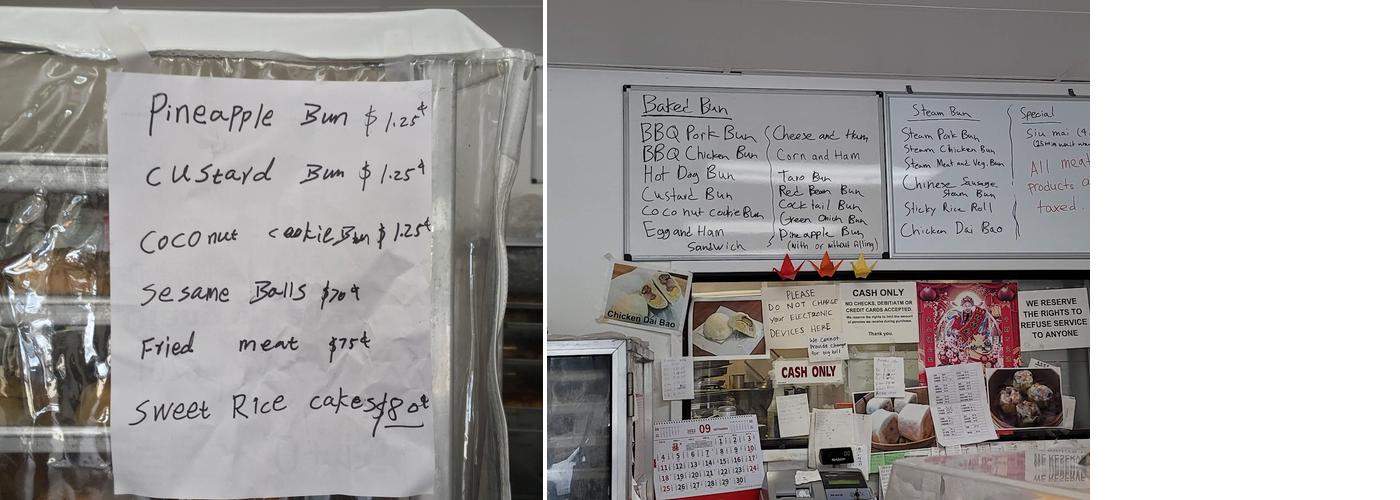 Pineapple Bun $1.25¢
Custard Bun $1.25¢
Coconut cookie Bun $1.25¢
Sesame Balls $70¢
Fried meat $75¢
Sweet Rice cakes $80¢
Baked Bun
BBQ Pork Bun
BBQ Chicken Bun
Hot Dog Bun
Custard Bun
Coconut cookie Bun
Egg and Ham
Sandwich
Cheese and Ham
Corn and Ham
Taro Bun
Red Bean Bun
Cocktail Bun
Green Onion Bun
Pineapple Bun
(with or without filling)
Steam Bun
Steam Pork Bun
Steam Chicken Bun
Steam Meat and Veg. Bun
Chinese Sausage
Steam Bun
Sticky Rice Roll
Chicken Dai Bao
Special
Siu mai (4
(25 min wait
All meat
products
taxed.
Chicken Dai Bao
PLEASE
DO NOT CHARGE
YOUR ELECTRONIC
DEVICES HERE
We Cannot
Provide change
for big bill
CASH ONLY
NO CHECKS, DEBIT/ATM OR
CREDIT CARDS ACCEPTED.
We reserve the rights to limit the amount
of pennies we receive during purchase.
Thank you.
WE RESERVE
THE RIGHTS TO
REFUSE SERVICE
TO ANYONE
CASH ONLY
09
1 2 3
4 5 6 7 8 9 10
11 12 13 14 15 16 17
18 19 20 21 22 23 24
25 26 27 28 29 30